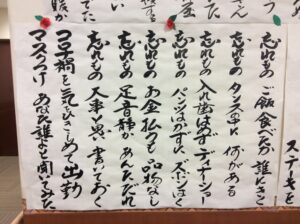 ステーキを
忘れもの ご飯食べたか 誰にきく
忘れもの タンス開け 何がある
忘れもの 入れ歯はめず ディナーショー
忘れもの パンツはかず ズボンはく
忘れもの お金払うも 品物なし
忘れもの 足音静か あんただれ
忘れもの 大事と思い 書いておく
コロナ禍を 気を引きしめて 出勤
マスクつけ あなた誰よと 聞いてみた